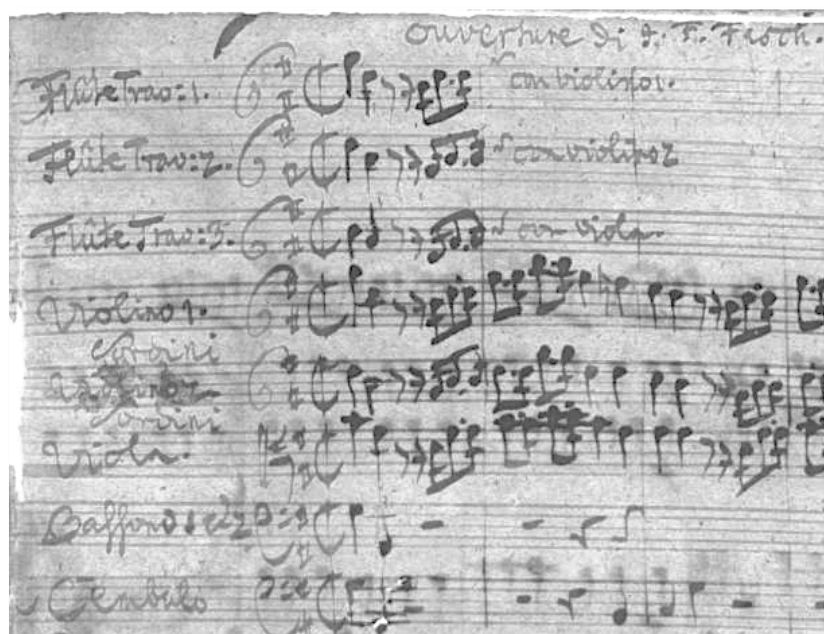 Ouverture di J. F. Fasch.
Flûte Trav: 1. con violino 1.
Flûte Trav: 2. con violino 2
Flûte Trav: 3. con viola.
Violino 1.
Sordini
Sordini
Viola.
Bassono 1 e 2
Cembalo